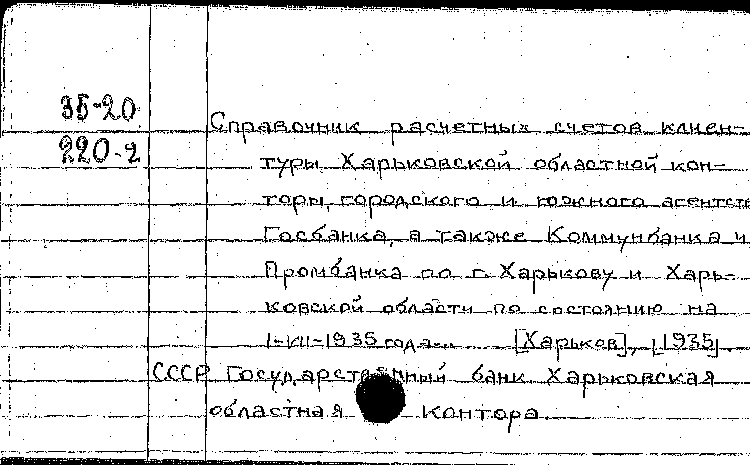 35-20
220-2
Справочник расчетных счетов клиен-
туры Харьковской областной кон-
торы, городского и южного агентств
Госбанка, а также Коммунбанка и
Промбанка по г. Харькову и Харь-
ковской области по состоянию на
1-VII-1935 года... [Харьков], [1935]
СССР Государственный банк Харьковская
областная контора.